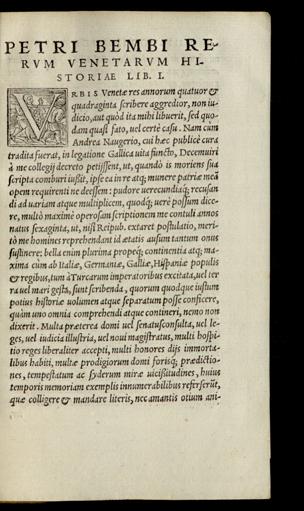 PETRI BEMBI RE-
RVM VENETARVM HI-
STORIAE LIB. I.
VRBIS Venetæ res annorum quatuor &
quadraginta scribere aggredior, non iu-
dicio, aut quòd ita mihi libuerit, sed quo-
dam quasi fato, uel certè casu. Nam cum
Andrea Naugerio, cui hæc publicè cura
tradita fuerat, in legatione Gallica uita functo, Decemuiri
à me collegij decreto petijssent, ut, quando is moriens sua
scripta comburi iussit, ipse ea in re atq; munere patriæ meæ
opem requirenti ne deessem: pudore uerecundiaq; recusan
di ad uariam atque multiplicem, quodq; uerè possum dice-
re, multò maximè operosam scriptionem me contuli annos
natus sexaginta, ut, nisi Reipub. extaret postulatio, meri-
tò me homines reprehendant id ætatis ausum tantum onus
sustinere; bella enim plurima propeq; continentia atq; ma-
xima cùm ab Italiæ, Germaniæ, Galliæ, Hispaniæ populis
& regibus, tum à Turcarum imperatoribus excitata, uel ter
ra uel mari gesta, sunt scribenda, quorum quodque iustum
potius historiæ uolumen atque separatum posse conficere,
quàm uno omnia comprehendi atque contineri, nemo non
dixerit. Multa præterea domi uel senatusconsulta, uel le-
ges, uel iudicia illustria, uel noui magistratus, multi hospi-
tio reges liberaliter accepti, multi honores dijs immorta-
libus habiti, multæ prodigiorum domi forisq; prædictio-
nes, tempestatum ac syderum miræ uicißitudines, huius
temporis memoriam exemplis innumerabilibus referserũt,
quæ colligere & mandare literis, nec amantis otium ani-